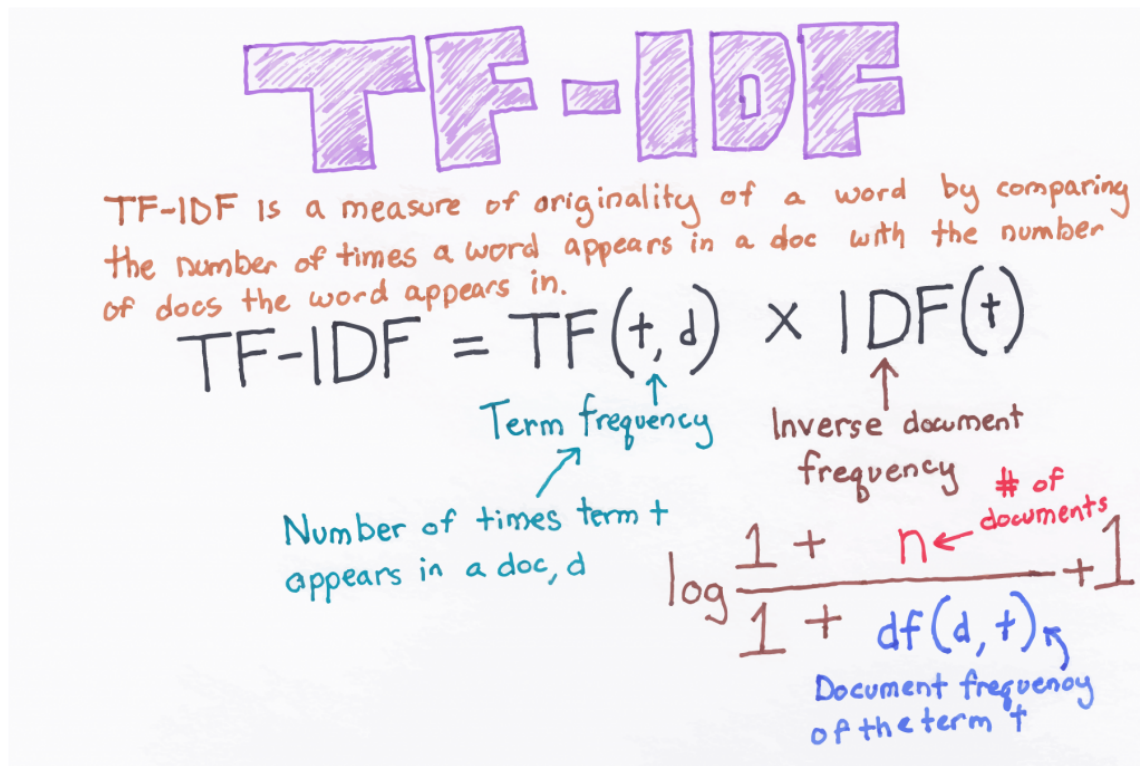 TF-IDF
TF-IDF is a measure of originality of a word by comparing
the number of times a word appears in a doc with the number
of docs the word appears in.
TF-IDF = TF(t, d) × IDF(t)
Term frequency
Inverse document
frequency
Number of times term t
appears in a doc, d
# of
documents
1 + n
log + 1
1 + df(d, t)
Document frequency
of the term t